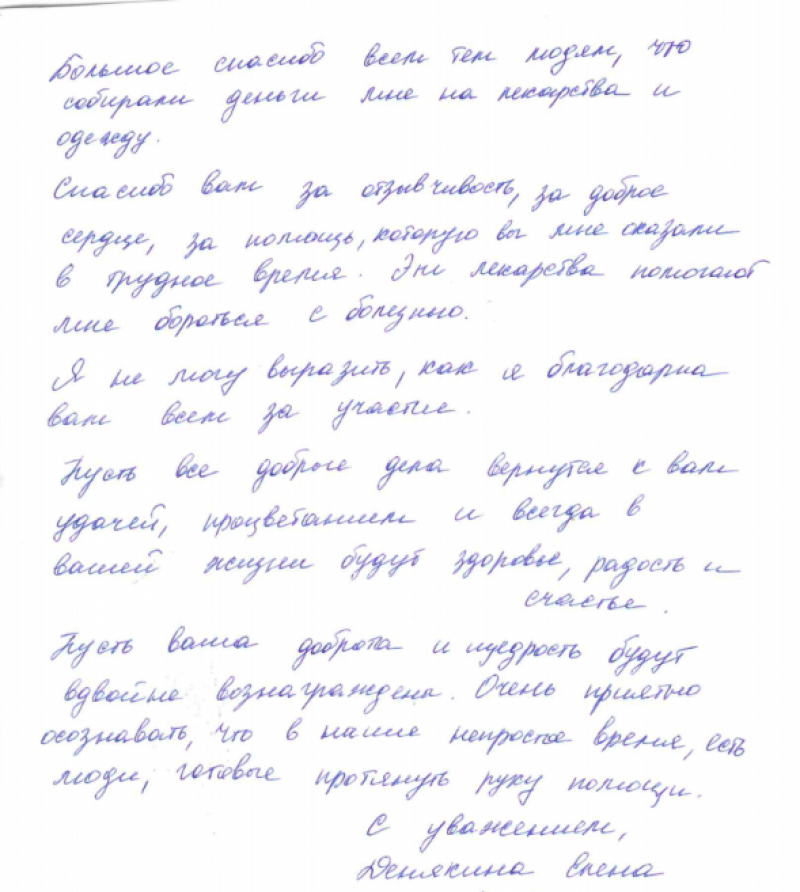 Большое спасибо всем тем людям, что
собирали деньги мне на лекарства и
одежду.
Спасибо вам за отзывчивость, за доброе
сердце, за помощь, которую вы мне оказали
в трудное время. Эти лекарства помогают
мне бороться с болезнью.
Я не могу выразить, как я благодарна
вам всем за участие.
Пусть все добрые дела вернутся к вам
удачей, процветанием и всегда в
вашей жизни будут здоровье, радость и
счастье.
Пусть ваша доброта и щедрость будут
вдвойне вознаграждены. Очень приятно
осознавать, что в наше непростое время, есть
люди, готовые протянуть руку помощи.
С уважением,
Денякина Елена